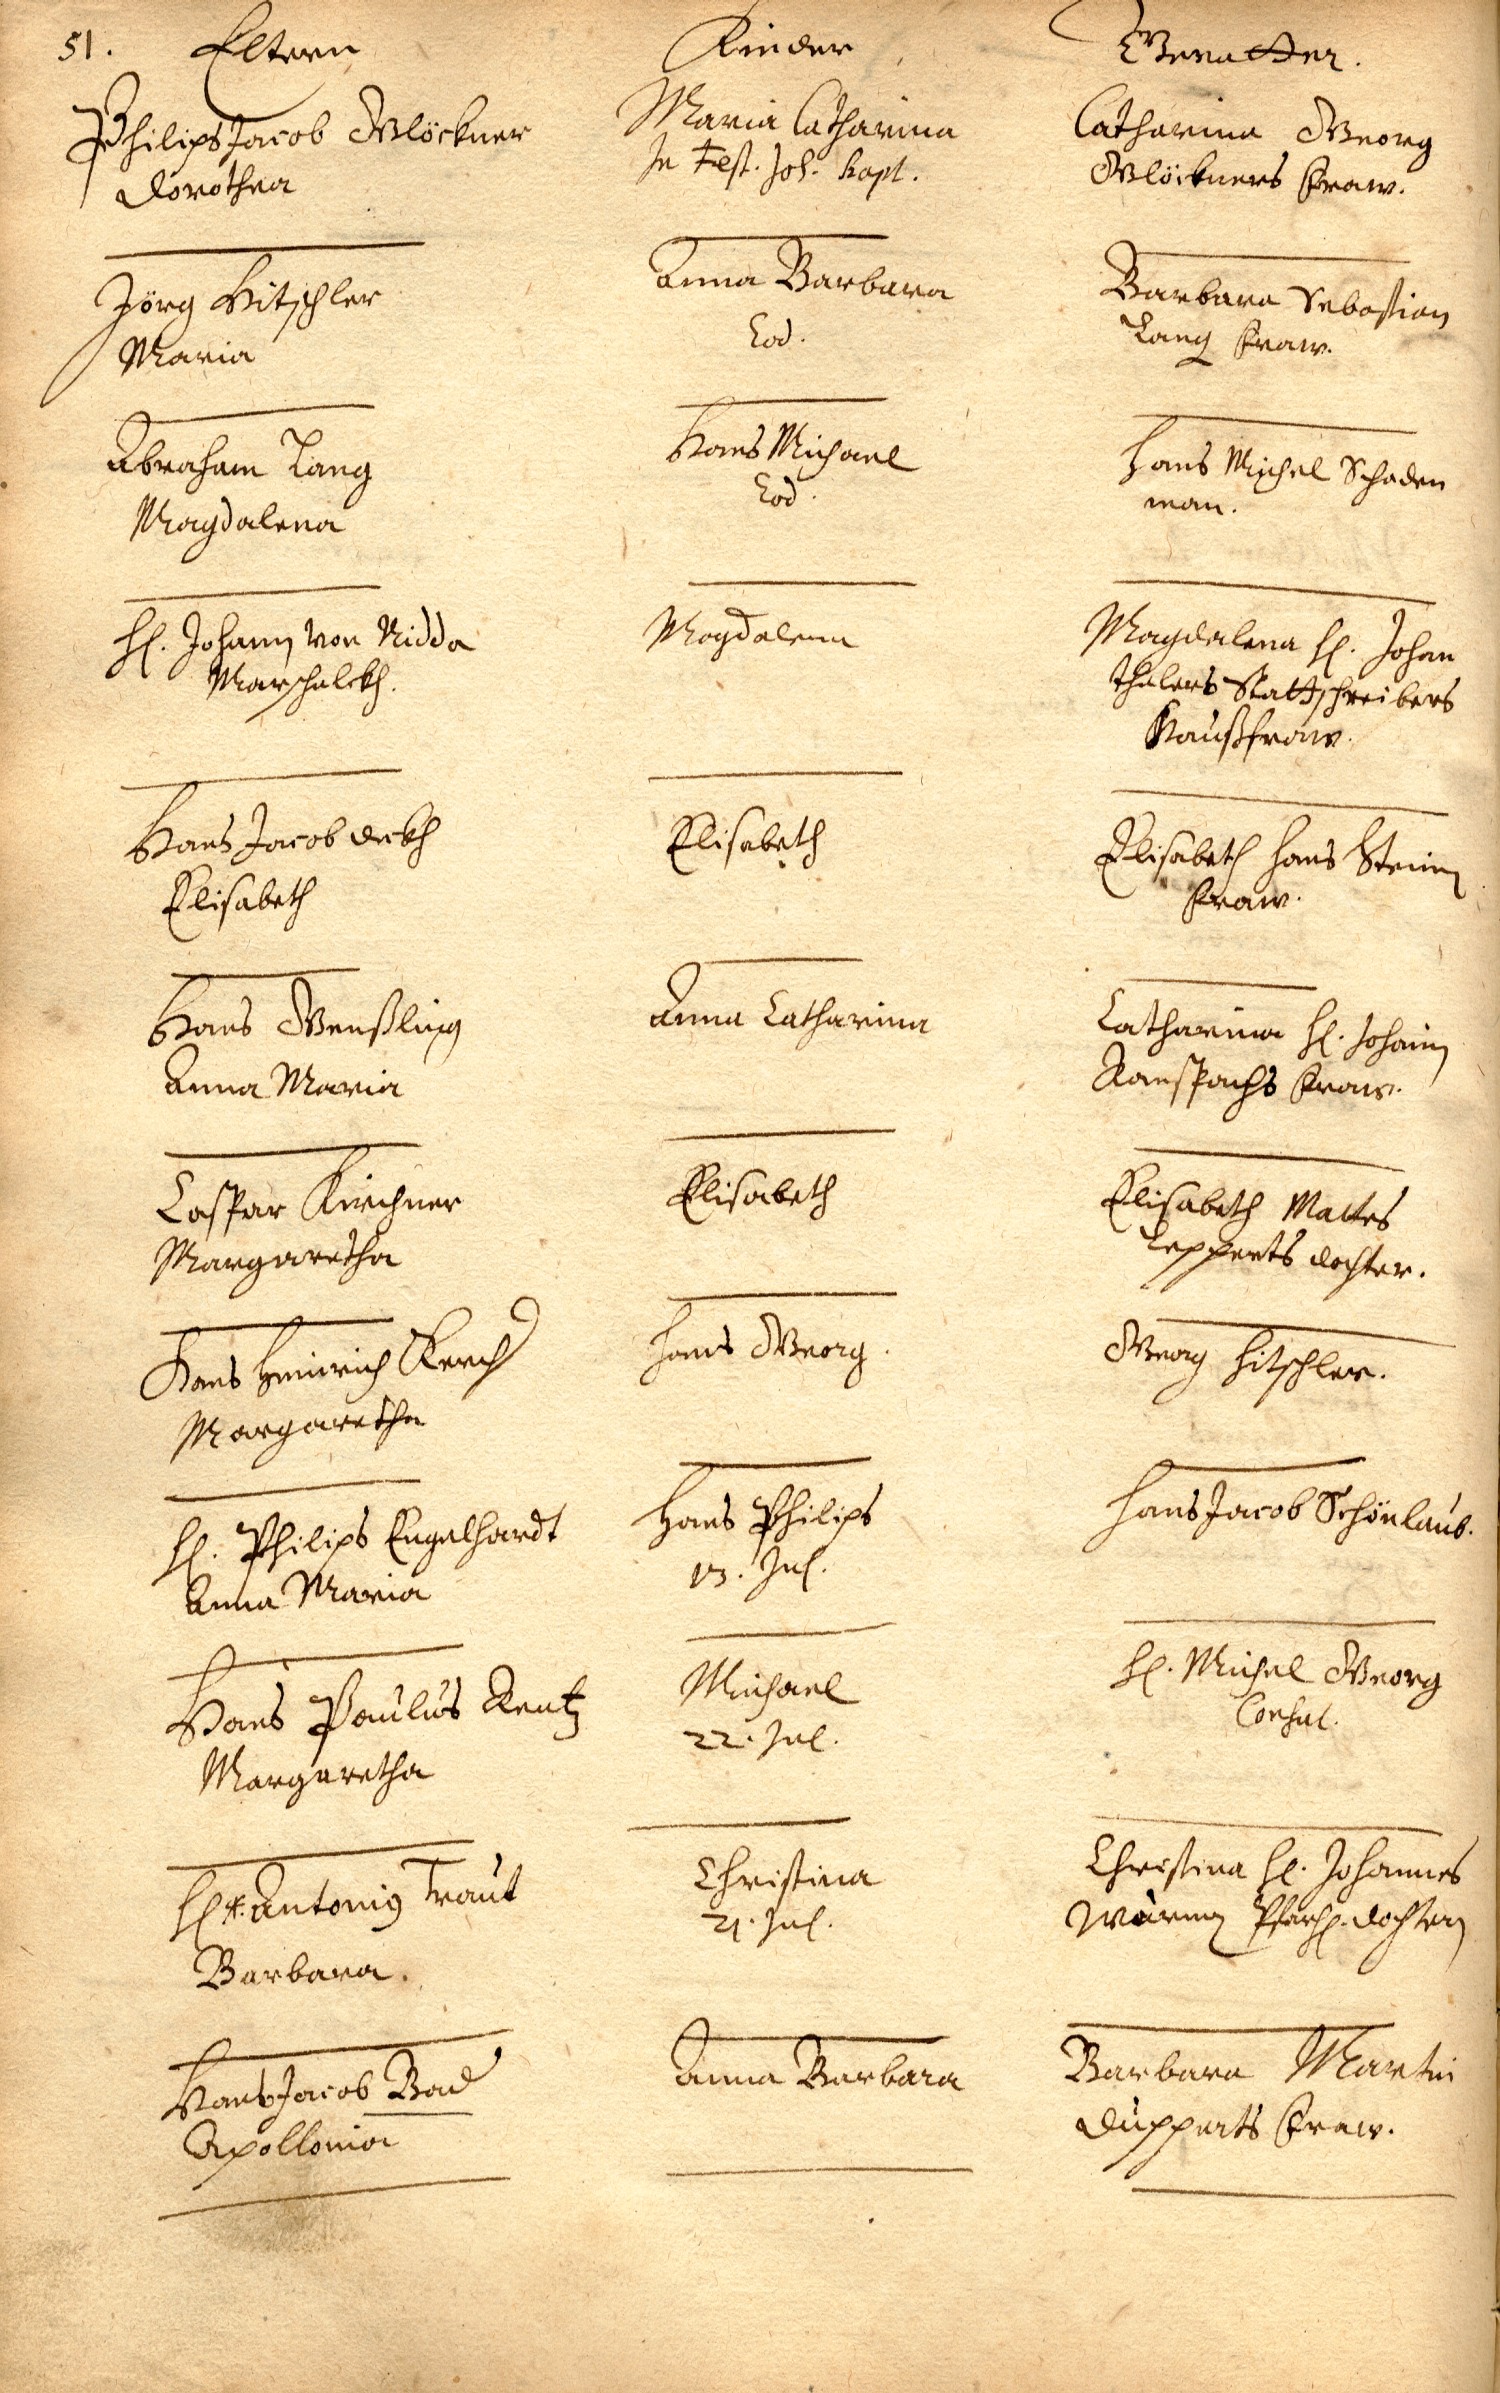 51. Eltern Kinder Gevatter.
Philips Jacob Glöckner Maria Catharina Catharina Georg
Dorothea In Fest. Joh. Bapt. Glöckners fraw.
Jörg Hitschler Anna Barbara Barbara Sebastian
Maria Eod. Lang fraw.
Abraham Lang Hans Michael Hans Michel Schaden
Magdalena Eod. man.
H. Johann von Nidda Magdalena Magdalena H. Johan
Marschalckh. Thalers Stattschreibers
Haußfraw.
Hans Jacob Elisabeth Elisabeth Hans Stein
Elisabeth fraw.
Hans Genßling Anna Catharina Catharina H. Johann
Anna Maria Ranspachs fraw.
Caspar Kirchner Elisabeth Elisabeth Mattes
Margaretha Lepperts dochter.
Hans Heinrich Kerch Hans Georg. Georg Hitschler.
Margaretha
H. Philips Engelhardt Hans Philips Hans Jacob Schönlaub.
Anna Maria 13. Jul.
Hans Paulus Rentz Michael H. Michel Georg
Margaretha 22. Jul. Consul.
H. Antonius Traut Christina Christina H. Johannes
Barbara. 21. Jul. Pfarrh. dochter
Hans Jacob Bad Anna Barbara Barbara Martin
Apollonia Dupperts fraw.